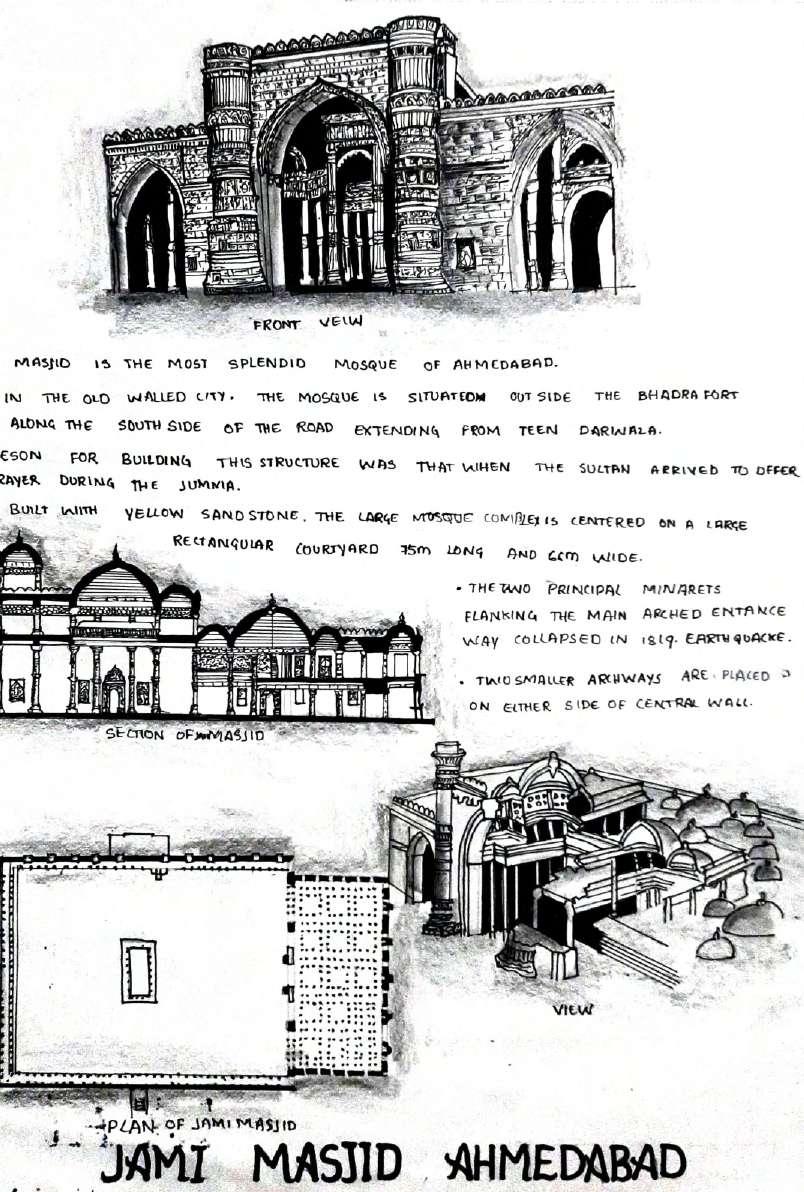 FRONT VEIW
MASJID IS THE MOST SPLENDID MOSQUE OF AHMEDABAD.
IN THE OLD WALLED CITY. THE MOSQUE IS SITUATEDN OUTSIDE THE BHADRA FORT
ALONG THE SOUTH SIDE OF THE ROAD EXTENDING FROM TEEN DARWALA.
ESON FOR BUILDING THIS STRUCTURE WAS THAT WHEN THE SULTAN ARRIVED TO OFFER
RAYER DURING THE JUMMA.
BUILT WITH YELLOW SANDSTONE. THE LARGE MOSQUE COMPLEX IS CENTERED ON A LARGE
RECTANGULAR COURTYARD 75M LONG AND 66M WIDE.
• THE TWO PRINCIPAL MINARETS
FLANKING THE MAIN ARCHED ENTANCE
WAY COLLAPSED IN 1819. EARTHQUACKE.
• TWO SMALLER ARCHWAYS ARE PLACED
ON EITHER SIDE OF CENTRAL WALL.
SECTION OF JAMI MASJID
VIEW
PLAN OF JAMI MASJID
JAMI MASJID AHMEDABAD